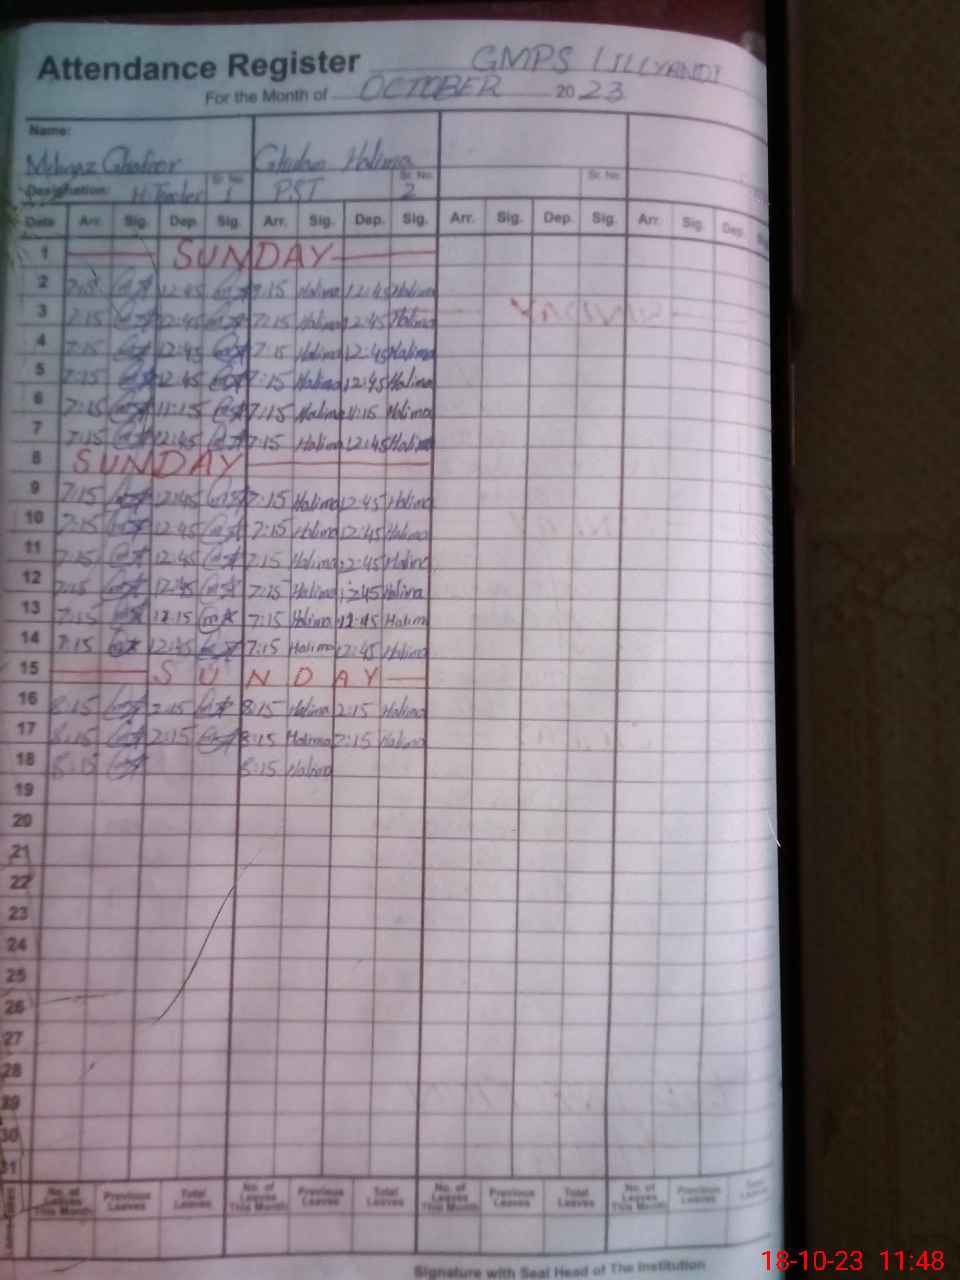 Attendance Register GMPS LILLYANDI
For the Month of OCTOBER 20 23
Name:
Mehnaz Ghafoor Ghulam Halima
Designation: H.Teacher Sr. No. 1 PST Sr. No. 2 Sr. No.
Date Arr. Sig. Dep. Sig. Arr. Sig. Dep. Sig. Arr. Sig. Dep. Sig. Arr. Sig. Dep.
1 SUNDAY
2 7:15 12:45 7:15 Halima 12:45 Halima
3 7:15 12:45 7:15 Halima 12:45 Halima
4 7:15 12:45 7:15 Halima 12:45 Halima
5 7:15 12:45 7:15 Halima 12:45 Halima
6 7:15 11:15 7:15 Halima 11:15 Halima
7 7:15 12:45 7:15 Halima 12:45 Halima
8 SUNDAY
9 7:15 12:45 7:15 Halima 12:45 Halima
10 7:15 12:45 7:15 Halima 12:45 Halima
11 7:15 12:45 7:15 Halima 12:45 Halima
12 7:15 12:45 7:15 Halima 12:45 Halima
13 7:15 7:15 Halima Halima
14 7:15 12:45 7:15 Halima 12:45 Halima
15 SUNDAY
16 8:15 2:15 8:15 Halima 2:15 Halima
17 8:15 2:15 8:15 Halima 2:15 Halima
18 8:15 8:15 Halima
19
20
21
22
23
24
25
26
27
28
29
30
31
No. of Leaves This Month Previous Leaves Total Leaves No. of Leaves This Month Previous Leaves Total Leaves No. of Leaves This Month Previous Leaves Total Leaves No. of Leaves This Month Previous Leaves
Signature with Seal Head of The Institution
18-10-23 11:48